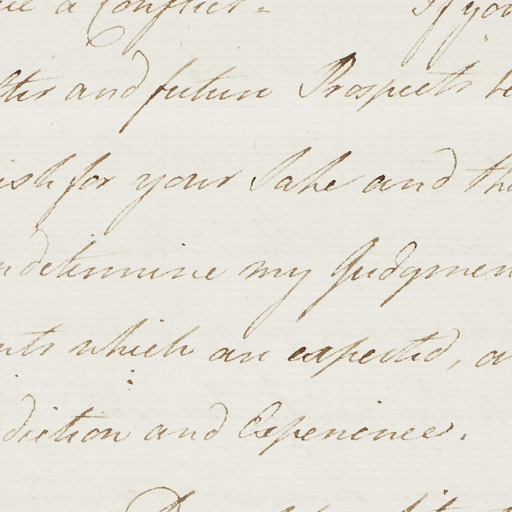 a Conflict. If you
and future Prospects be
ish for your Sake and tha
ndetermine my Judgmen
nts which are expected, a
diction and Experience.